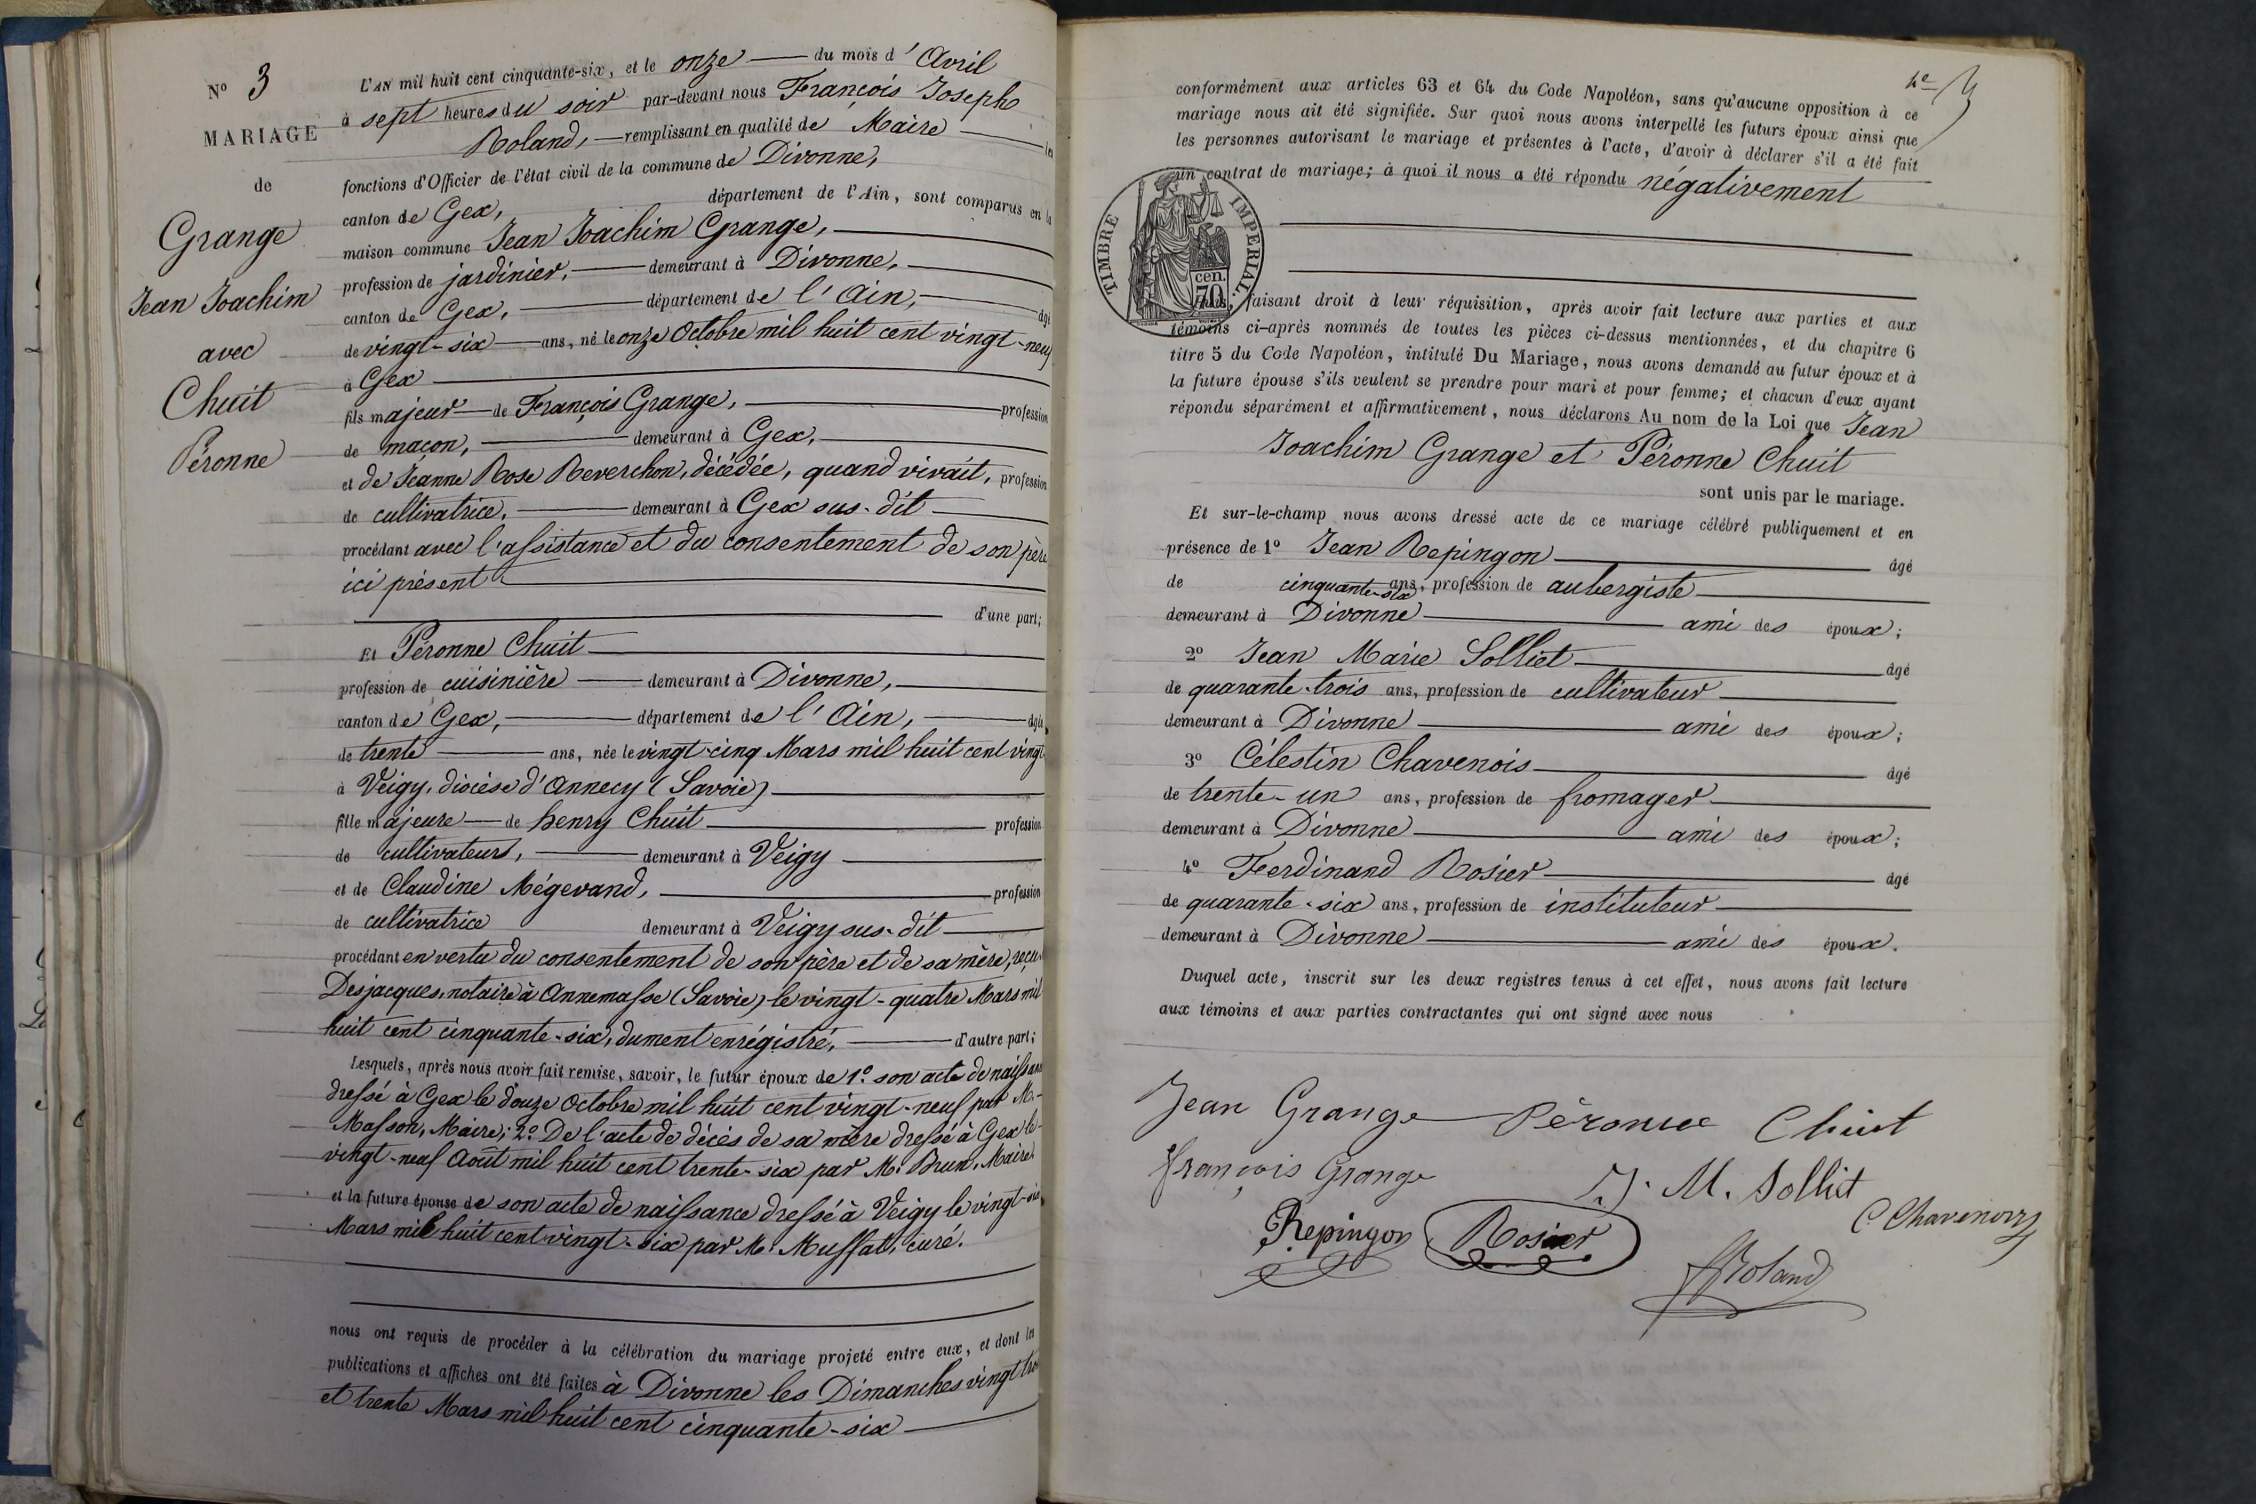 N° 3
MARIAGE
de
Grange
Jean Joachim
avec
Chuit
Péronne
L'AN mil huit cent cinquante-six, et le onze du mois d'Avril
à sept heures du soir par-devant nous François Joseph
Roland, remplissant en qualité de Maire les
fonctions d'Officier de l'état civil de la commune de Divonne,
canton de Gex, département de l'Ain, sont comparus en la
maison commune Jean Joachim Grange,
profession de jardinier, demeurant à Divonne,
canton de Gex, département de l'Ain, âgé
de vingt-six ans, né le onze Octobre mil huit cent vingt-neuf
à Gex
fils majeur de François Grange, profession
de maçon, demeurant à Gex,
et de Jeanne Rose Reverchon, décédée, quand vivait, profession
de cultivatrice, demeurant à Gex sus-dit
procédant avec l'assistance et du consentement de son père
ici présent
d'une part;
Et Péronne Chuit
profession de cuisinière demeurant à Divonne,
canton de Gex, département de l'Ain, âgée
de trente ans, née le vingt-cinq Mars mil huit cent vingt
à Veigy, diocèse d'Annecy (Savoie)
fille majeure de henry Chuit profession
de cultivateurs, demeurant à Veigy
et de Claudine Mégevand, profession
de cultivatrice demeurant à Veigy sus-dit
procédant en vertu du consentement de son père et de sa mère, reçu
Desjacques, notaire à Annemasse (Savoie) le vingt-quatre Mars mil
huit cent cinquante-six, dument enrégistré, d'autre part;
Lesquels, après nous avoir fait remise, savoir, le futur époux de 1° son acte de naissan
dressé à Gex le douze Octobre mil huit cent vingt-neuf par M.
Masson, Maire; 2° De l'acte de décès de sa mère dressé à Gex le
vingt-neuf Août mil huit cent trente-six par M. Brun, Maire
et la future épouse de son acte de naissance dressé à Veigy le vingt-six
Mars mil huit cent vingt-six par M. Muffat, curé.
nous ont requis de procéder à la célébration du mariage projeté entre eux, et dont les
publications et affiches ont été faites à Divonne les Dimanches vingt troi
et trente Mars mil huit cent cinquante-six
4e
conformément aux articles 63 et 64 du Code Napoléon, sans qu'aucune opposition à ce
mariage nous ait été signifiée. Sur quoi nous avons interpellé les futurs époux ainsi que
les personnes autorisant le mariage et présentes à l'acte, d'avoir à déclarer s'il a été fait
un contrat de mariage; à quoi il nous a été répondu négativement
TIMBRE IMPERIAL.
70 cen.
Nous, faisant droit à leur réquisition, après avoir fait lecture aux parties et aux
témoins ci-après nommés de toutes les pièces ci-dessus mentionnées, et du chapitre 6
titre 5 du Code Napoléon, intitulé Du Mariage, nous avons demandé au futur époux et à
la future épouse s'ils veulent se prendre pour mari et pour femme; et chacun d'eux ayant
répondu séparément et affirmativement, nous déclarons Au nom de la Loi que Jean
Joachim Grange et Péronne Chuit
sont unis par le mariage.
Et sur-le-champ nous avons dressé acte de ce mariage célébré publiquement et en
présence de 1° Jean Repingon âgé
de cinquante-six ans, profession de aubergiste
demeurant à Divonne ami des époux;
2° Jean Marie Solliet âgé
de quarante-trois ans, profession de cultivateur
demeurant à Divonne ami des époux;
3° Célestin Chavenois âgé
de trente-un ans, profession de fromager
demeurant à Divonne ami des époux;
4° Ferdinand Rosier âgé
de quarante-six ans, profession de instituteur
demeurant à Divonne ami des époux.
Duquel acte, inscrit sur les deux registres tenus à cet effet, nous avons fait lecture
aux témoins et aux parties contractantes qui ont signé avec nous
Jean Grange Péronne Chuit
François Grange J. M. Solliet
C. Chavenois
Repingon Rosier
Roland